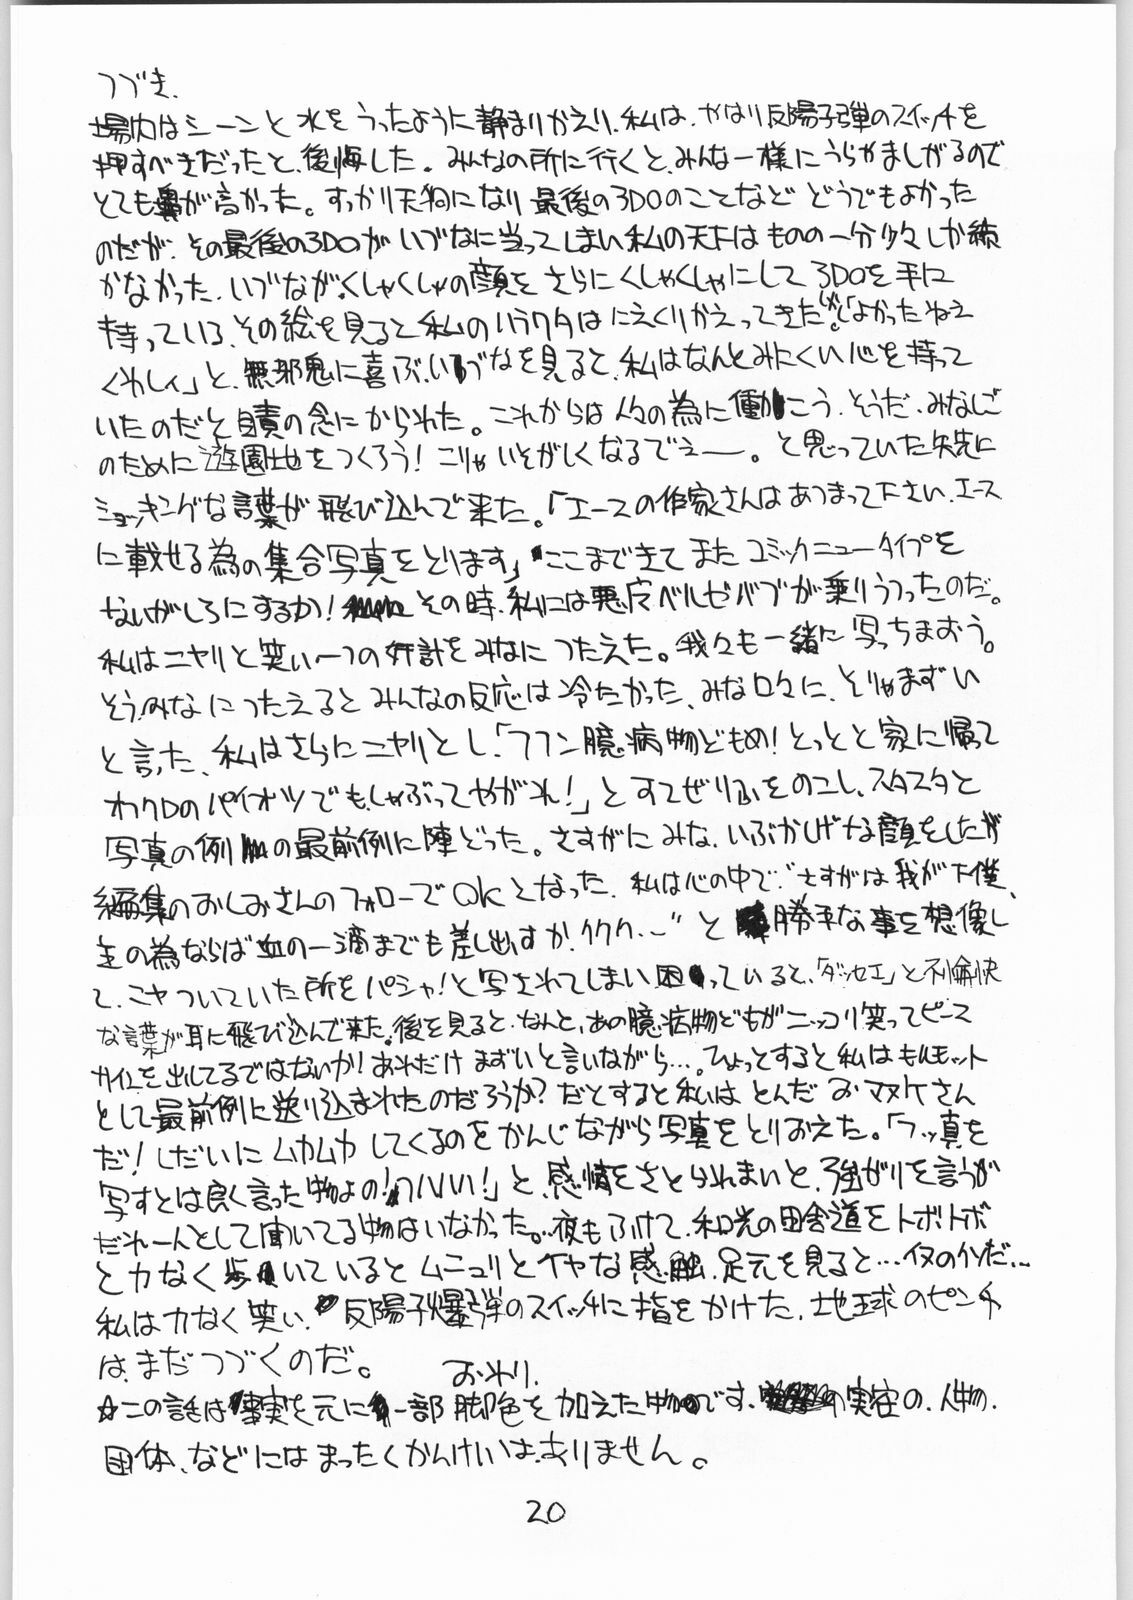 つづき.
場内はシーンと水をうったように静まりかえり、私は、やはり反陽子弾のスイッチを
押すべきだったと、後悔した。みんなの所に行くと、みんな一様にうらやましがるので
とても鼻が高かった。すっかり天狗になり最後の3DOのことなどどうでもよかった
のだが、その最後の3DOがいづなに当ってしまい私の天下はものの一分少々しか続
かなかった、いづながくしゃくしゃの顔をさらにくしゃくしゃにして3DOを手に
持っている、その絵を見ると私のハラワタはにえくりかえってきたが、「よかったねえ
くわしィ」と、無邪鬼に喜ぶ、いづなを見ると、私はなんとみにくい心を持って
いたのだと自責の念にかられた。これからは人々の為に働こう、そうだ、みなしご
のために遊園地をつくろう!こりゃいそがしくなるでえー。と思っていた矢先に
ショッキングな言葉が飛び込んで来た。「エースの作家さんはあつまって下さい、エース
に載せる為の集合写真をとります」ここまできてまたコミックニュータイプを
ないがしろにするか!その時、私には悪魔ベルゼバブが乗りうつったのだ。
私はニヤリと笑い一つの奸計をみなにつたえた。我々も一緒に写っちまおう。
そうみなにつたえるとみんなの反応は冷たかった、みな口々に、そりゃまずい
と言った、私はさらにニヤリとし、「フフン臆病物どもめ!とっとと家に帰って
オフクロのパイオツでも、しゃぶってやがれ!」とすてぜりふをのこし、スタスタと
写真の例の最前例に陣どった。さすがにみな、いぶかしげな顔をしたが
編集のおしおさんのフォローでOKとなった、私は心の中で"さすがは我が下僕、
主の為ならば血の一滴までも差し出すか、ククク…"と勝手な事を想像し
て、ニヤついていた所をパシャ!と写されてしまい、困っていると、「ダッセエ」と不愉快
な言葉が耳に飛び込んで来た。後を見ると、なんと、あの臆病物どもがニッコリ笑ってピース
サインを出してるではないか!あれだけまずいと言いながら…。ひょっとすると私はもルモット
として最前例に送り込まれたのだろうか?だとすると私はとんだおマヌケさん
だ!しだいにムカムカしてくるのをかんじながら写真をとりおえた。「フッ真を
写すとは良く言った物よの!ハハハ!」と、感情をさとられまいと、強がりを言うが
だれ一人として聞いてる物はいなかった。夜もふけて、和光の田舎道をトボトボ
と力なく歩いているとムニュリとイヤな感触、足元を見ると…イヌのクソだ…
私は力なく笑い、反陽子爆弾のスイッチに指をかけた、地球のピンチ
は、まだつづくのだ。
おわり.
☆この話は事実を元に一部脚色を加えた物です、実在の、人物、
団体、などにはまったくかんけいは、ありません。
20